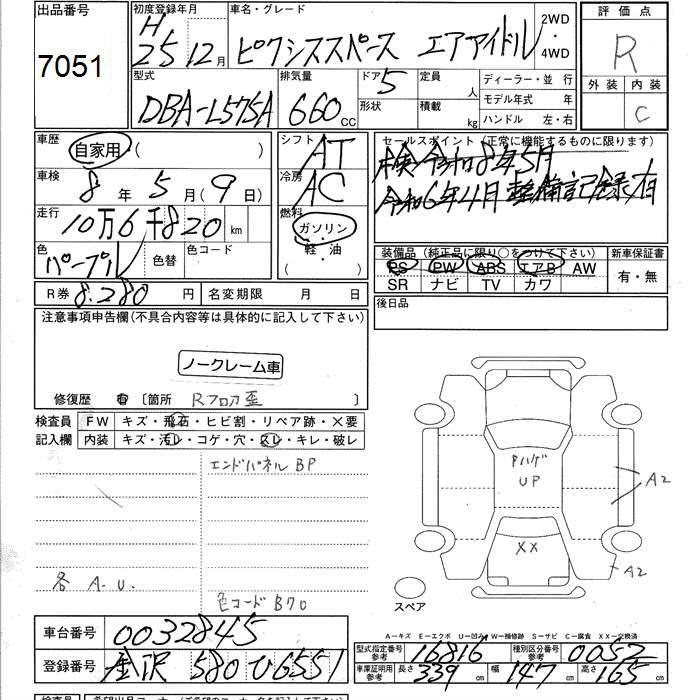 出品番号
7051
初度登録年月
H
25 12月
車名・グレード
ピクシススペース エアアイドル
2WD
・
4WD
評価点
R
外装 内装
C
型式
DBA-L575A
排気量
660 CC
ドア 5
形状
定員 人
積載 kg
ディーラー・並 行
モデル年式 年
ハンドル 左・右
車歴
自家用 ( )
車検
8 年 5 月(9 日)
走行
10万6千820 km
色
パープル
色替
色コード
R券 8.280 円
名変期限 月 日
シフト
AT
冷房
AC
燃料
ガソリン
・
軽・油
( )
セールスポイント(正常に機能するものに限ります)
検 令和8年5月
令和6年4月 整備記録有
装備品(純正品に限り○をつけて下さい)
PS PW ABS エアB AW
SR ナビ TV カワ
新車保証書
有・無
後日品
注意事項申告欄(不具合内容等は具体的に記入して下さい)
ノークレーム車
修復歴 有 〔箇所 Rフロア歪 〕
検査員
記入欄
FW キズ・飛石・ヒビ割・リペア跡・×要
内装 キズ・汚レ・コゲ・穴・スレ・キレ・破レ
エンドパネル BP
各 A.U.
色コード B70
ハゲ
UP
A2
XX
A2
スペア
A-キズ E-エクボ U-凹み W-補修跡 S-サビ C-腐食 XX-交換済
車台番号 0032845
登録番号 金沢 580 う6551
型式指定番号
参考
16816
種別区分番号
参考
0052
車庫証明用
参考
長さ 339 cm
幅 147 cm
高さ 165 cm